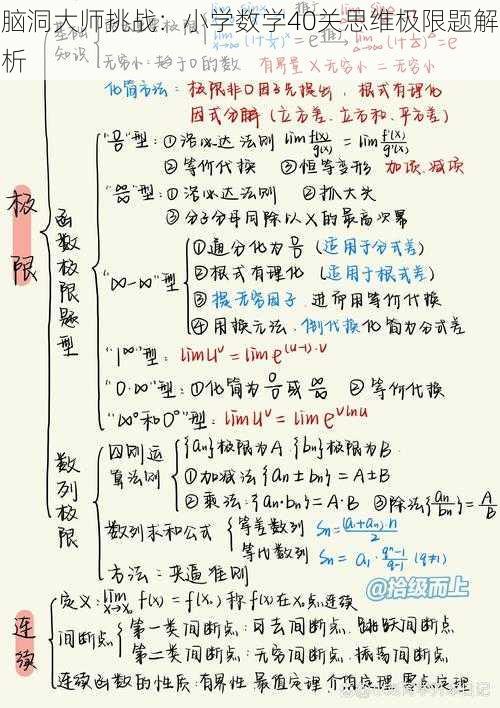 脑洞大师挑战：小学数学40关思维极限题解析
基础知识
无穷小：趋于0的数 有界量×无穷小=无穷小
化简方法：极限非0因子先提出，根式有理化
因式分解（立方差、立方和、平方差）
极限
函数极限题型
"0/0"型：①洛必达法则 lim f(x)/g(x) = lim f'(x)/g'(x)
②等价代换 ③恒等变形 加项.减项
"∞/∞"型：①洛必达法则 ②抓大头
③分子分母同除以X的最高次幂
"∞-∞"型
①通分化为0/0（适用于分式差）
②根式有理化（适用于根式差）
③提无穷因子.进而用等价代换
④用换元法.倒代换化简为分式差
"1^∞"型：lim u^v = lim e^(u-1)·v
"0·∞"型：①化简为0/0或∞/∞ ②等价代换
"∞^0和0^0"型：lim u^v = lim e^vlnu
数列极限
四则运算法则
{an}极限为A {bn}极限为B
①加减法{an±bn}=A±B
②乘法：{an·bn}=A·B ③除法{an/bn}=A/B
数列求和公式
等差数列 Sn=(a1+an)·n/2
等代数列 Sn=a1·q^n-1/q-1 (q≠1)
方法：夹逼准则
@拾级而上
连续
定义：lim x→x0 f(x)=f(x0)称f(x)在x0点连续
间断点
第一类间断点：可去间断点、跳跃间断点
第二类间断点：无穷间断点、振荡间断点
连续函数的性质：有界性 最值定理 介值定理 零点定理